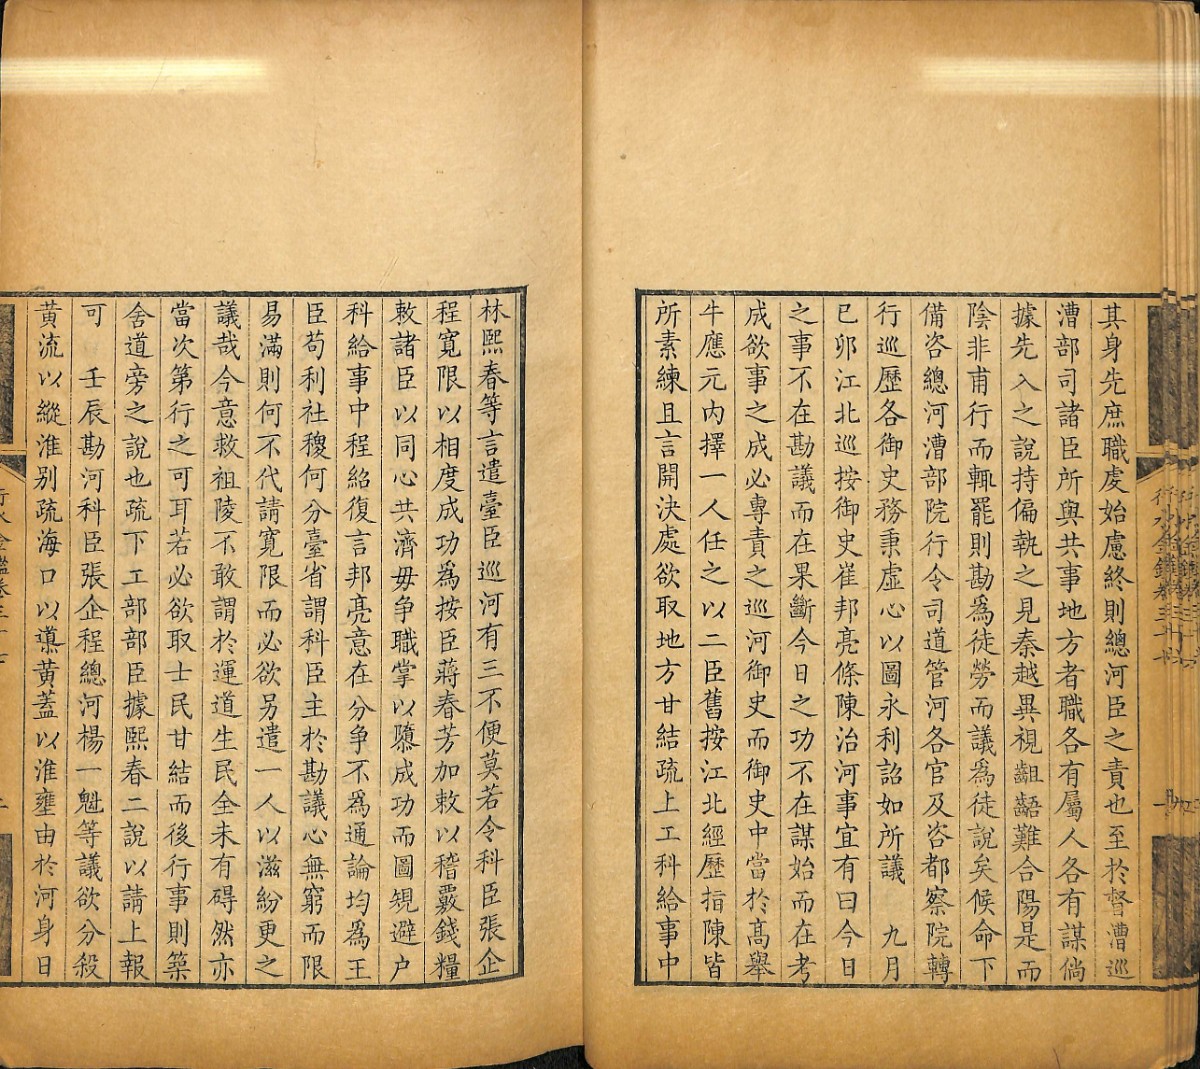 其身先庶職處始慮終則總河臣之責也至於督漕巡
漕部司諸臣所與共事地方者職各有屬人各有謀倘
據先入之說持偏執之見秦越異視齟齬難合陽是而
陰非甫行而輒罷則勘爲徒勞而議爲徒說矣候命下
備咨總河漕部院行令司道管河各官及咨都察院轉
行巡歷各御史務秉虛心以圖永利詔如所議　九月
已卯江北巡按御史崔邦亮條陳治河事宜有曰今日
之事不在勘議而在果斷今日之功不在謀始而在考
成欲事之成必專責之巡河御史而御史中當於高舉
牛應元內擇一人任之以二臣舊按江北經歷指陳皆
所素練且言開決處欲取地方甘結疏上工科給事中
林熙春等言遣臺臣巡河有三不便莫若令科臣張企
程寬限以相度成功爲按臣蔣春芳加敕以稽覈錢糧
敕諸臣以同心共濟毋争職掌以隳成功而圖規避户
科給事中程紹復言邦亮意在分争不爲通論均爲王
臣苟利社稷何分臺省謂科臣主於勘議心無窮而限
易滿則何不代請寬限而必欲另遣一人以滋紛更之
議哉今意救祖陵不敢謂於運道生民全未有碍然亦
當次第行之可耳若必欲取士民甘結而後行事則築
舍道旁之說也疏下工部部臣據熙春二說以請上報
可　壬辰勘河科臣張企程總河楊一魁等議欲分殺
黃流以縱淮别疏海口以導黃蓋以淮壅由於河身日
行水金鑑卷三十七